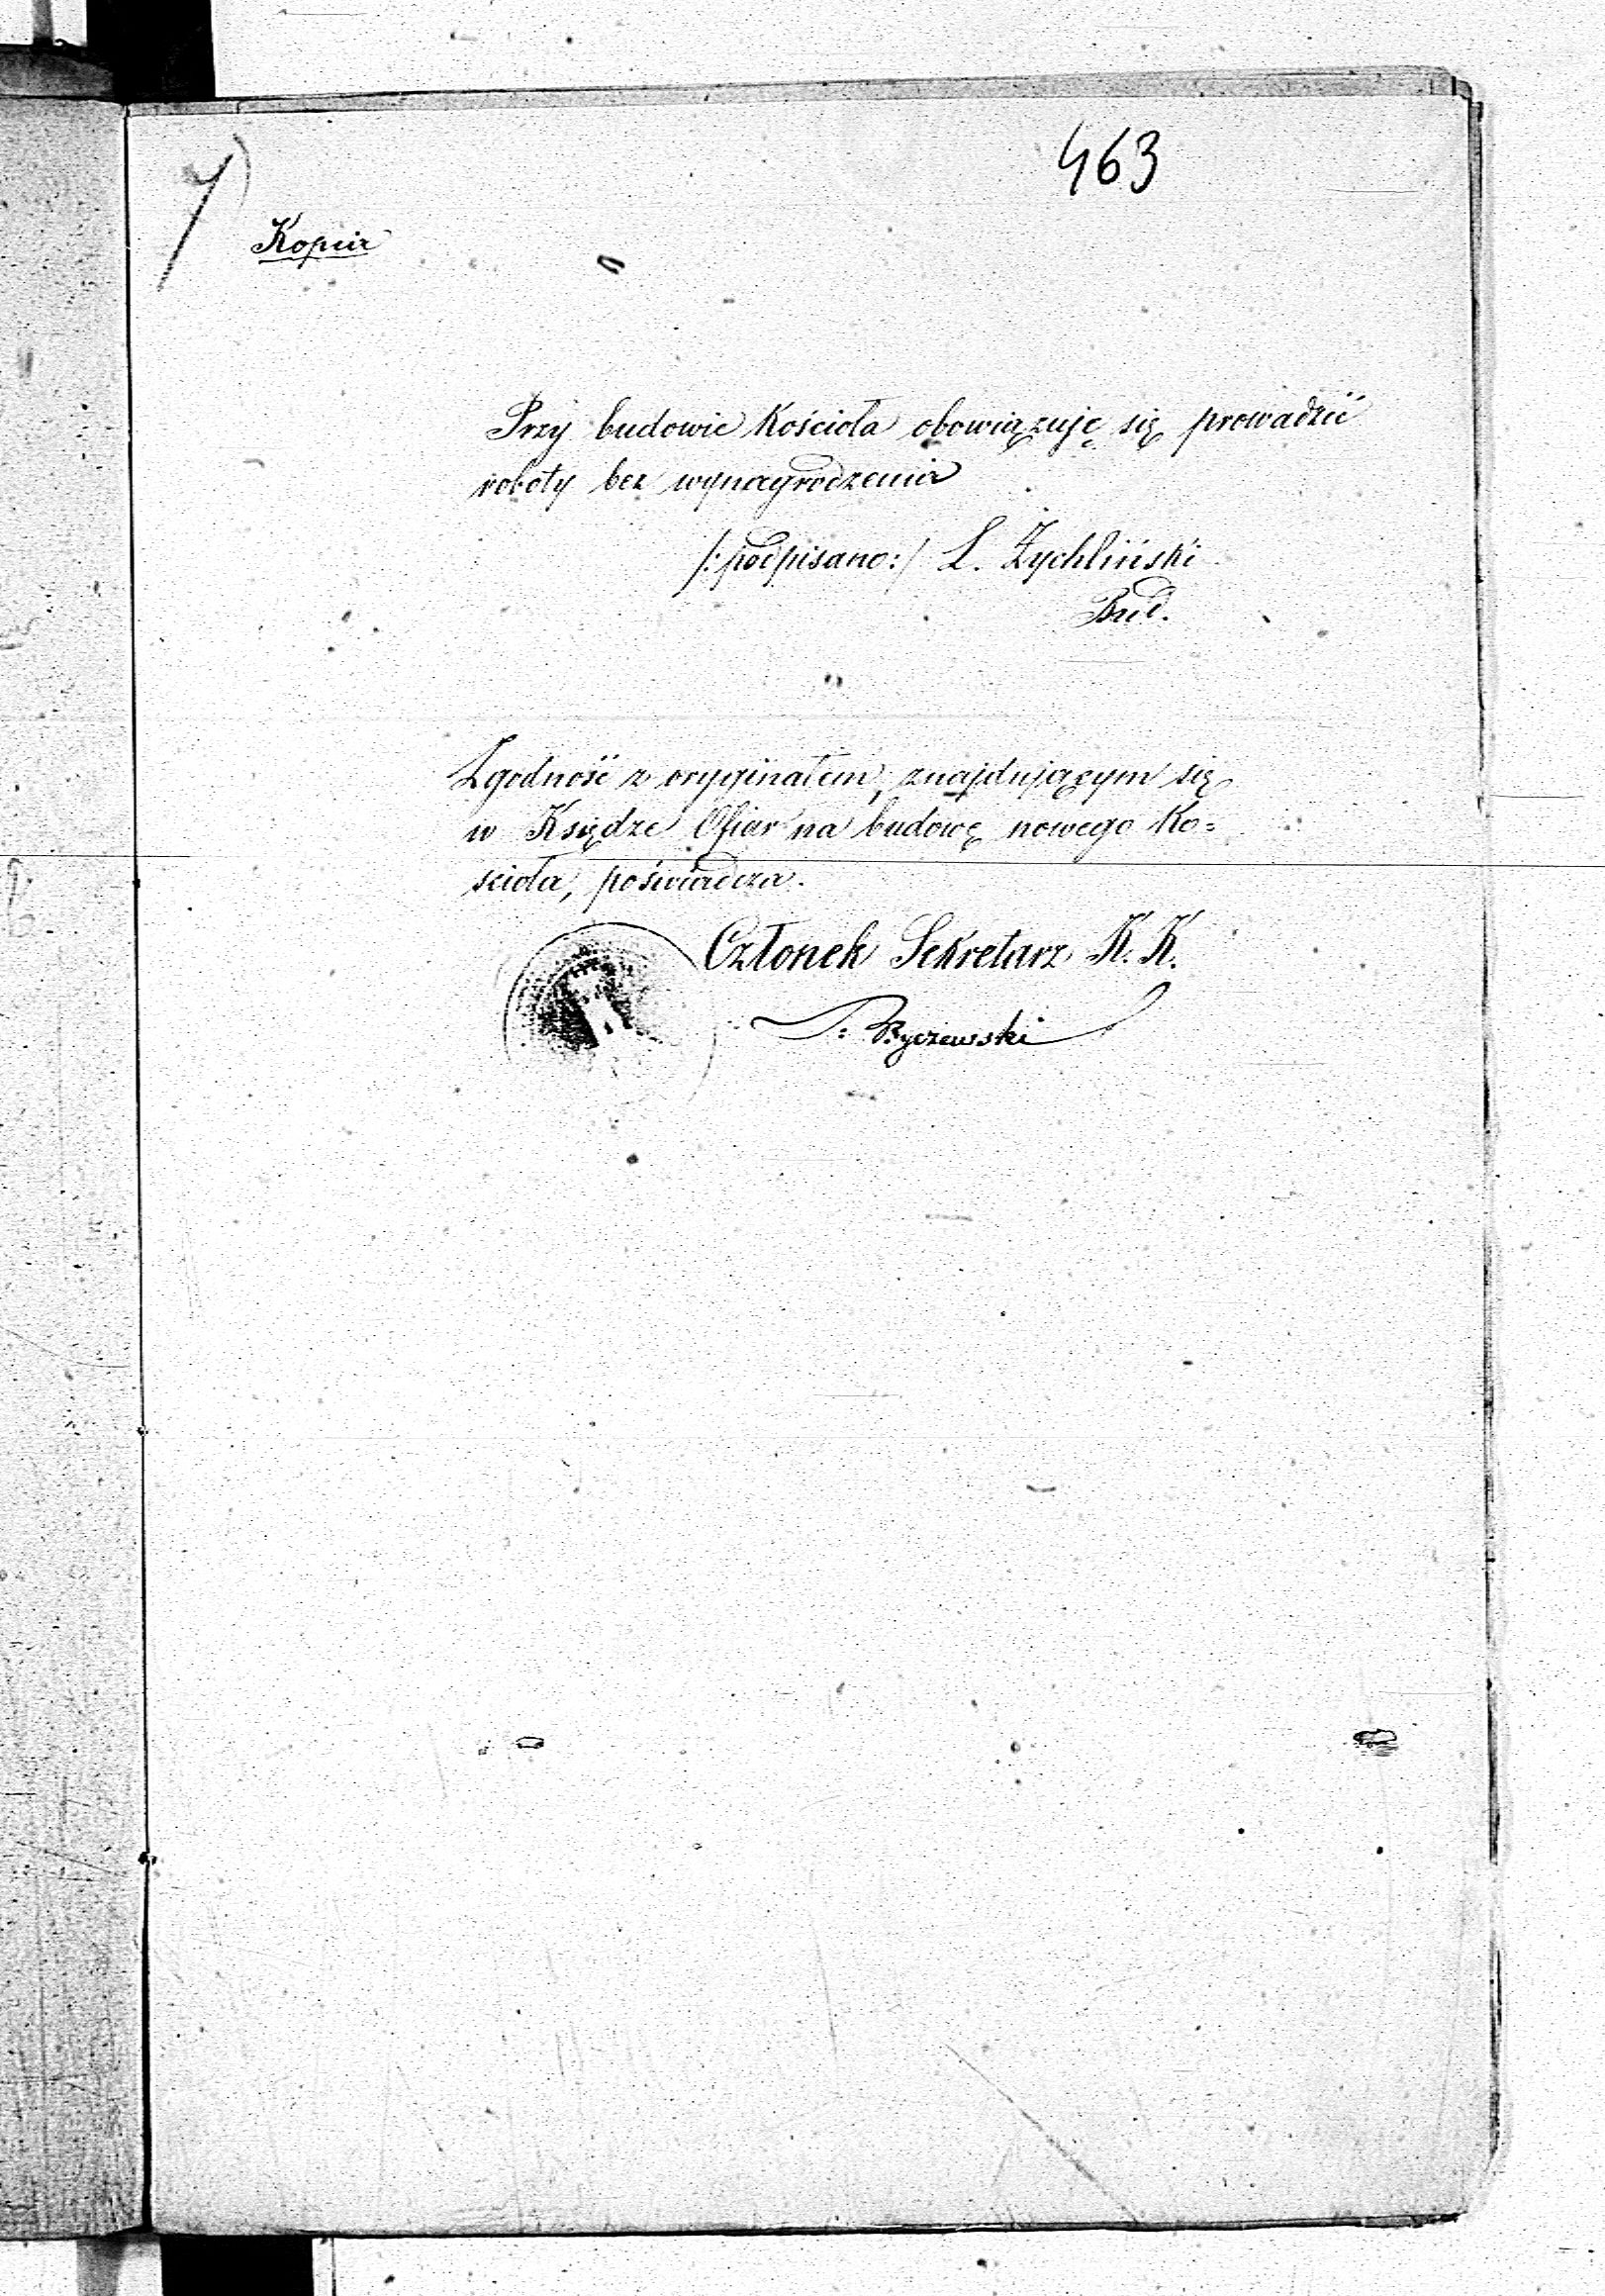 463
Kopia
Przy budowie Kościoła obowiązuję się prowadzić
roboty bez wynagrodzenia
/:podpisano:/ L. Żychliński
Bud.
Zgodność z oryginałem, znajdującym się
w Księdze Ofiar na budowę nowego Ko=
ścioła, poświadcza.
Członek Sekretarz K. K.